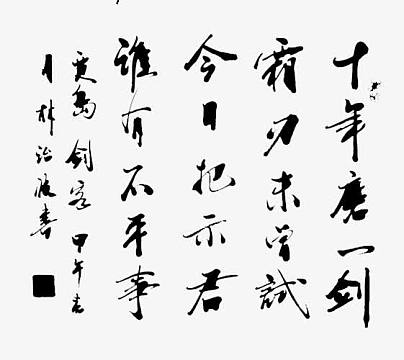 十年磨一剑
霜刃未曾試
今日把示君
誰有不平事
賈島 剑客 甲午
月林治